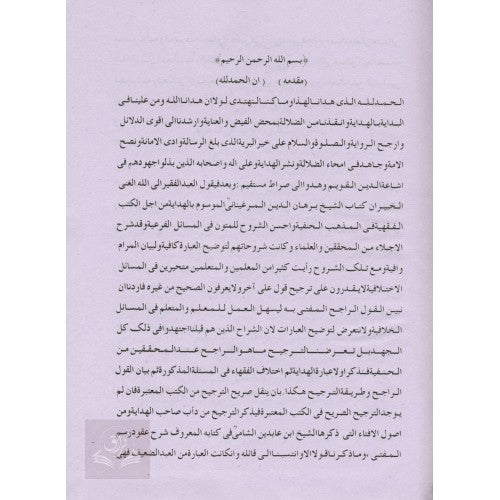 ﴿بسم الله الرحمن الرحيم﴾
(مقدمه) (ان الحمدلله)
الحمدلله الذى هدانا لهذا وما كنا لنهتدى لولا ان هدانا الله ومن علينا فى
البداية بالهداية وانقذنا من الضلالة بمحض الفيض والعناية وارشدنا الى اقوى الدلائل
وارجح الرواية والصلوة والسلام على خير البرية الذى بلغ الرسالة وادى الامانة ونصح
الامة وجاهد فى امحاء الضلالة ونشر الهداية وعلى اله واصحابه الذين بذلوا جهودهم فى
اشاعة الدين القويم وهدوا الى صراط مستقيم :وبعد فيقول العبد الفقير الى الله الغنى
الخبير ان كتاب الشيخ برهان الدين المرغينانىؒ الموسوم بالهداية من اجل الكتب
الفقهية فى المذهب الحنفية واحسن الشروح للمتون فى المسائل الفرعية وقد شرح
الاجلاء من المحققين والعلماء وكانت شروحاتهم لتوضيح العبارة كافية ولبيان المرام
وافية ومع تلك الشروح رأيت كثيرا من المعلمين والمتعلمين متحيرين فى المسائل
الاختلافية لا يقدرون على ترجيح قول على آخر ولا يعرفون الصحيح من غيره فاردنا ان
نبين القول الراجح المفتى به ليسهل العمل للمعلم والمتعلم فى المسائل
الخلافية ولا نتعرض لتوضيح العبارات لان الشراح الذين هم قبلنا اجتهدوا فى ذلك كل
الجهد بل تعرضنا لترجيح ما هو الراجح عند المحققين من
الحنفية فنذكر اولا عبارة الهداية ثم اختلاف الفقهاء فى المسئلة المذكورة ثم بيان القول
الراجح وطريقة الترجيح هكذا، بان ينقل صريح الترجيح من الكتب المعتبرة فان لم
يوجد الترجيح الصريح فى الكتب المعتبرة فيذكر الترجيح من دأب صاحب الهداية ومن
اصول الافتاء التى ذكرها الشيخ ابن عابدين الشامىؒ فى كتابه المعروف شرح عقود رسم
المفتى ،وما ذكرنا قولا الا وانتسبنا الى قائله وان كانت العبارة من العبد الضعيف فهى